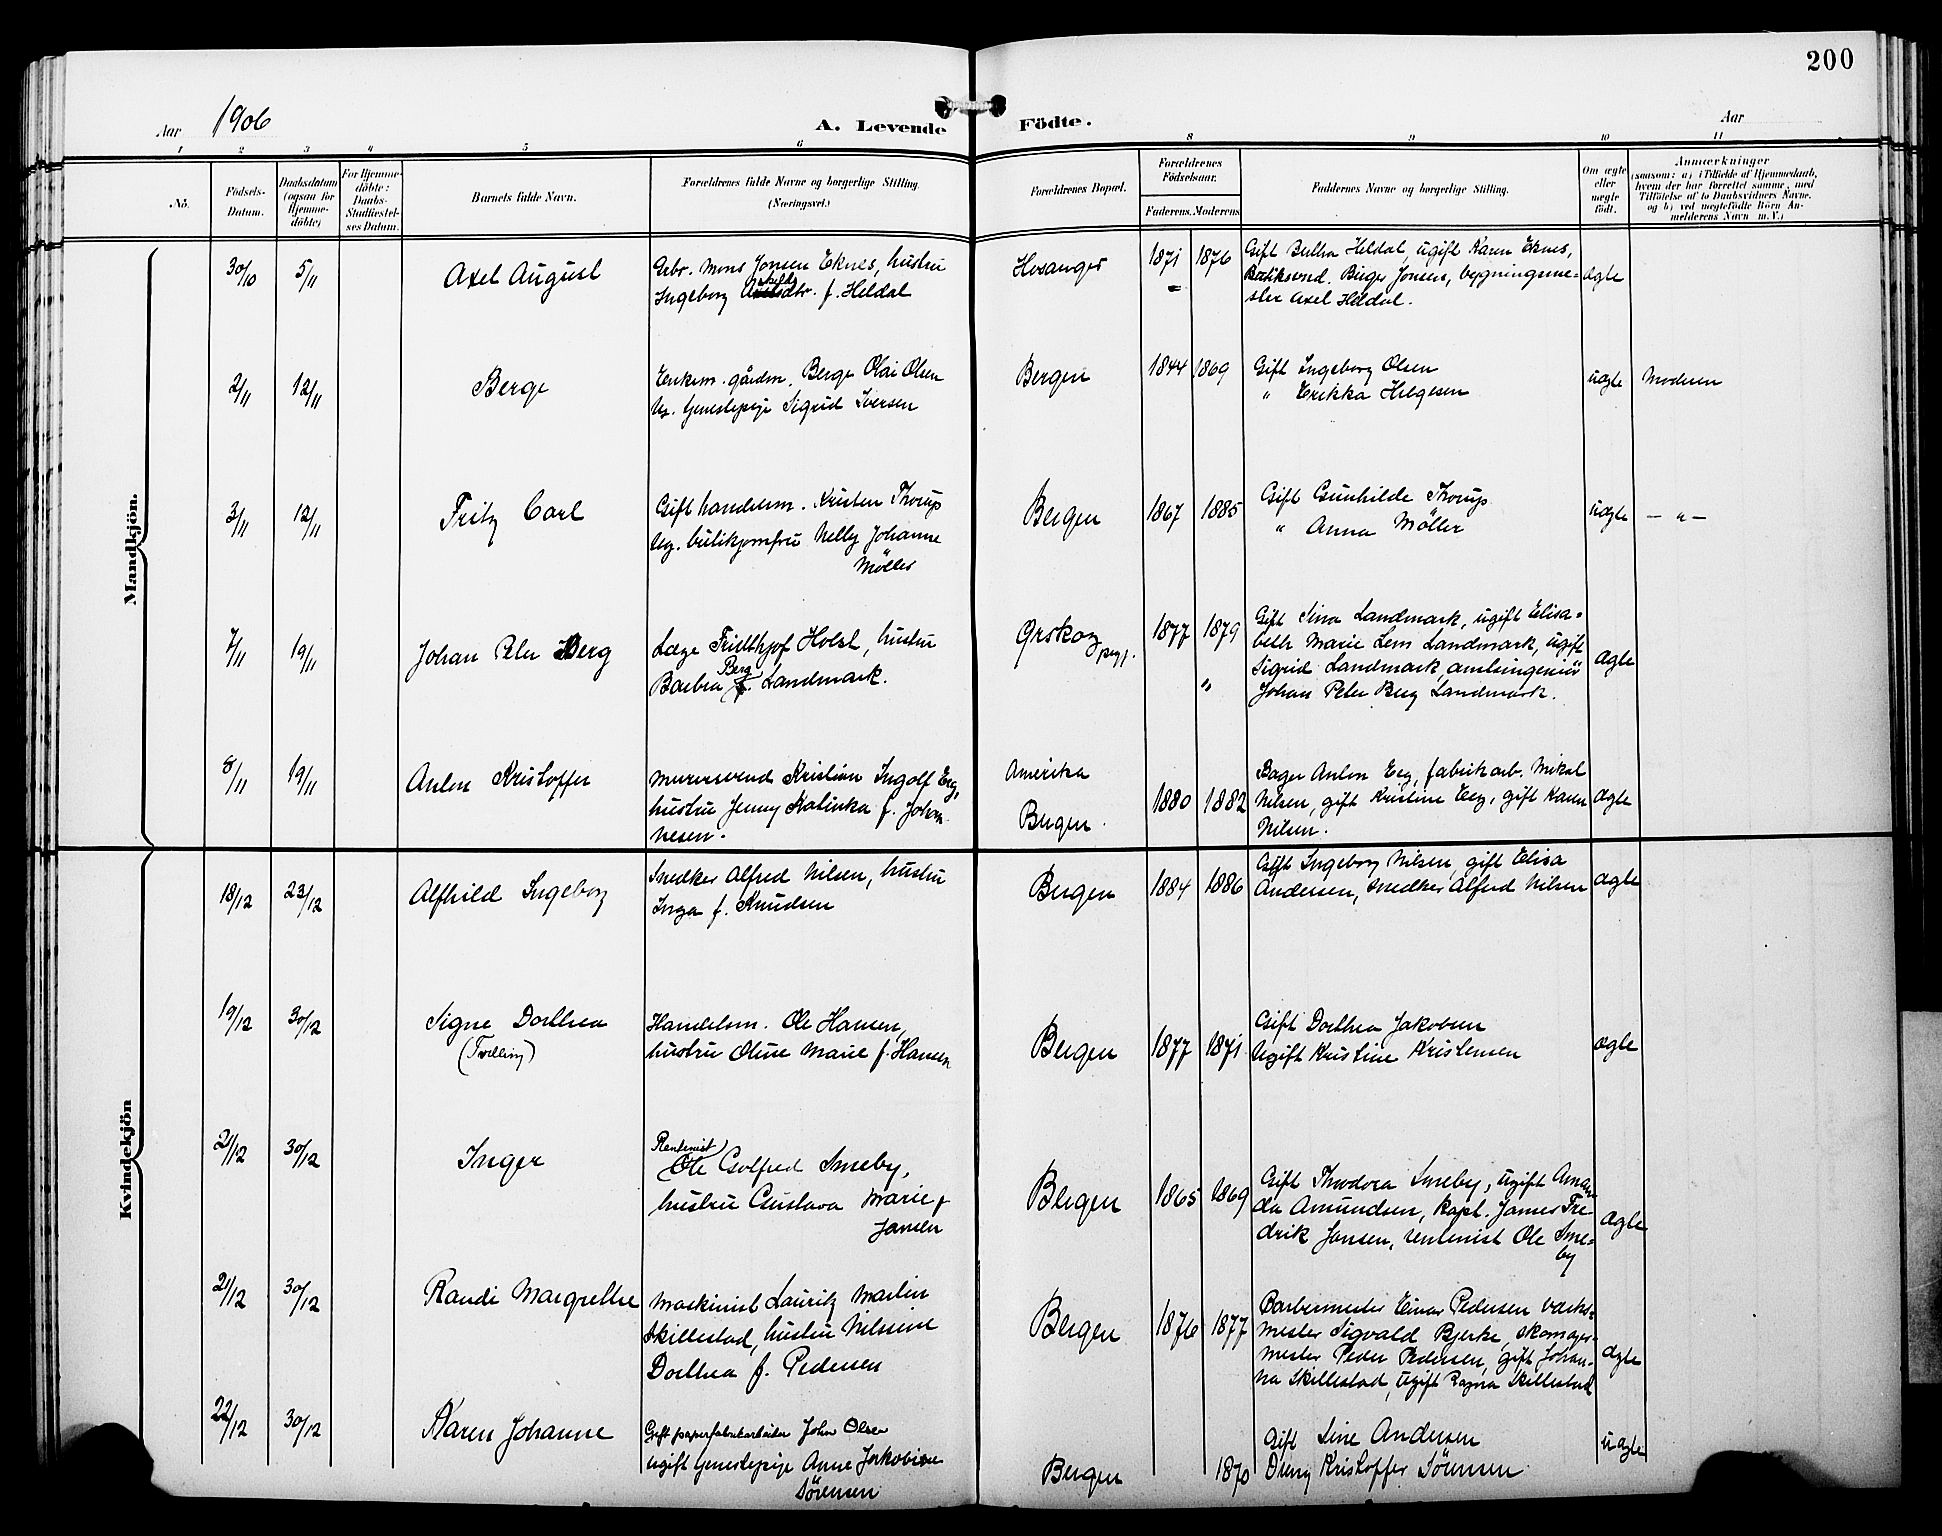 200
Aar 1906
A. Levende Födte.
Aar
1 2 3 4 5 6 8 9 10 11
No.
Födsels-Datum.
Daabsdatum (ogsaa for Hjemmedöbte)
For Hjemmedöbte: Daabs-Stadfæstelses Datum.
Barnets fulde Navn.
Forældrenes fulde Navne og borgerlige Stilling. (Næringsvei.)
Forældrenes Bopæl.
Forældrenes Födselsaar.
Faderens. Moderens.
Faddernes Navne og borgerlige Stilling.
Om ægte eller uægte födt.
Anmærkninger (saasom: a) i Tilfælde af Hjemmedaab, hvem der har forrettet samme, med Tilföielse af to Daabsvidners Navne. og b) ved uægtefödte Börn Anmelderens Navn m. V.)
Mandkjön.
30/10 5/11 Axel August
Gbr. Mons Jonsen Eknes, hustru
Ingeborg f. Heldal
Hosanger 1871 1876
Gift Bertha Heldal, ugift Karen Eknes,
Birger Jonsen, bygningsme-
ster Axel Heldal.
ægte
2/11 12/11 Berge
Enkem. gårdm. Berge Olai Olsen
Ug. tjenestepige Sigrid Iversen
Bergen 1844 1869
Gift Ingeborg Olsen
" Erikka Helgesen
uægte Moderen
3/11 12/11 Fritz Carl
Gift handelsm. Kristen Thorup
Ug. butikjomfru Nelly Johanne
Møller
Bergen 1867 1885
Gift Gunhilde Thorup
" Anna Möller
uægte — " —
7/11 19/11 Johan Peter Berg
Læge Fridthjof Holst, hustru
Barbra Berg f. Landmark.
Ørskog pgj. 1877 1879
"
Gift Sina Landmark, ugift Elisa-
beth Marie Lem Landmark, ugift
Sigrid Landmark, amtsingeniör
Johan Peter Berg Landmark.
ægte
8/11 19/11 Anton Kristoffer
Murersvend Kristian Ingolf Eeg,
hustru Jenny Kalinka f. Johan-
nesen.
Amerika
Bergen. 1880 1882
Bager Anton Eeg, fabrikarb. Mikal
Nilsen, gift Kristine Eeg, gift Karen
Nilsen.
ægte
Kvindekjön
18/12 23/12 Alfhild Ingeborg
Snedker Alfred Nilsen, hustru
Inga f. Knudsen
Bergen 1884 1886
Gift Ingeborg Nilsen, gift Elisa
Andersen, snedker Alfred Nilsen
ægte
19/12 30/12 Signe Dorthea
(Tvilling)
Handelsm. Ole Hansen,
hustru Oline Marie f. Hansen
Bergen 1877 1871
Gift Dorthea Jakobsen
Ugift Kristine Kristensen
ægte
21/12 30/12 Inger
Rentenist
Ole Gotfred Smeby,
hustru Gustava Marie f
Jansen
Bergen 1865 1869
Gift Thodora Smeby, ugift Aman-
da Amundsen, kapt. James Fre-
drik Jansen, rentenist Ole Sme-
by
ægte
21/12 30/12 Randi Margrethe
Maskinist Lauritz Martin
Skillestad, hustru Nilsine
Dorthea f. Pedersen
Bergen 1876 1877
Barbermester Einar Pedersen værks-
mester Sigvald Bjerke, skomager-
mester Peder Pedersen, gift Johan-
na Skillestad, ugift Ragna Skillestad
ægte
22/12 30/12 Karen Johanne
Gift papirfabrikarbeider John Olsen
ugift tjenestepige Anne Jakobine
Sörensen
Bergen 1870
Gift Line Andersen
Dreng Kristoffer Sörensen
uægte